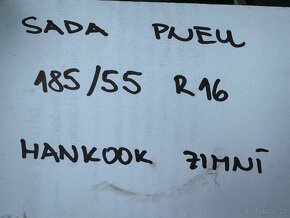 SADA PNEU
185/55 R16
HANKOOK ZIMNÍ